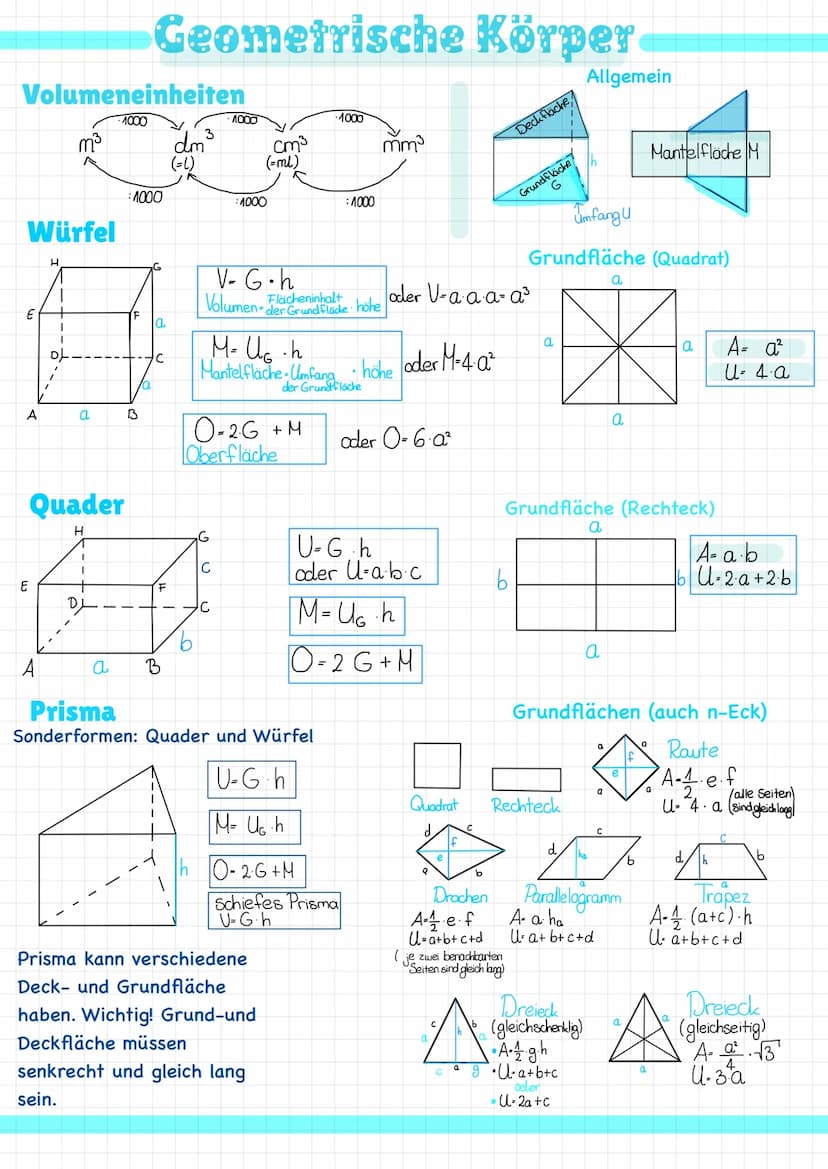 Geometrische Körper
Allgemein
Volumeneinheiten
·1000 ·1000 ·1000
m³ dm³ cm³ mm³
(=l) (=ml)
:1000 :1000 :1000
Deckfläche
Grundfläche
G
h
Umfang U
Mantelfläche M
Würfel
H G
E F
D C
A B
a
a
a
V= G·h
Volumen= Flächeninhalt der Grundfläche · höhe
oder V=a·a·a= a³
M= U_G ·h
Mantelfläche=Umfang der Grundfläche · höhe
oder M=4·a²
O=2·G +M
Oberfläche
oder O=6·a²
Grundfläche (Quadrat)
a
a a
a
A= a²
U= 4·a
Quader
H G
E F
D C
A B
c
b
a
U=G·h
oder U=a·b·c
M= U_G ·h
O=2 G+M
Grundfläche (Rechteck)
a
b b
a
A=a·b
U=2·a+2·b
Prisma
Sonderformen: Quader und Würfel
h
U=G·h
M= U_G·h
O=2·G+M
Schiefes Prisma
V=G·h
Prisma kann verschiedene
Deck- und Grundfläche
haben. Wichtig! Grund-und
Deckfläche müssen
senkrecht und gleich lang
sein.
Grundflächen (auch n-Eck)
Quadrat
Rechteck
a a
f
e
a a
Raute
A=1/2·e·f
U= 4·a (alle Seiten sind gleich lang)
d c
f
e
e b
Drachen
A=1/2·e·f
U=a+b+c+d
(je zwei benachbarten
Seiten sind gleich lang)
c
d hₐ b
a
Parallelogramm
A=a·hₐ
U=a+b+c+d
c
d h b
a
Trapez
A=1/2·(a+c)·h
U=a+b+c+d
c b
a h a
c a g
Dreieck
(gleichschenklig)
•A=1/2·g·h
•U=a+b+c
oder
•U=2a+c
a a
a
Dreieck
(gleichseitig)
A= a²/4·√3
U=3·a